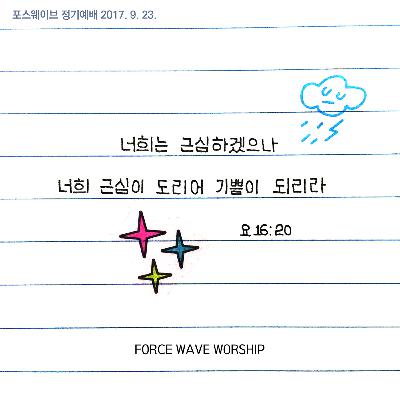 포스웨이브 정기예배 2017. 9. 23.
너희는 근심하겠으나
너희 근심이 도리어 기쁨이 되리라
요 16:20
FORCE WAVE WORSHIP